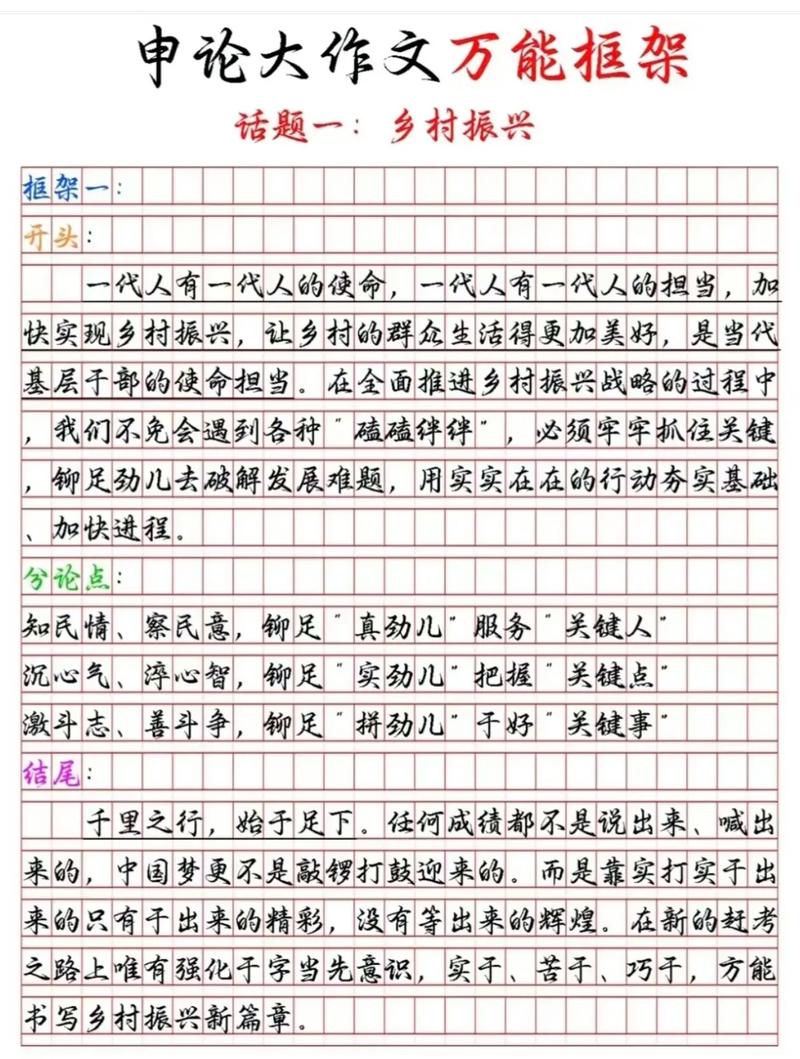 申论大作文万能框架
话题一：乡村振兴
框架一：
开头：
一代人有一代人的使命，一代人有一代人的担当，加
快实现乡村振兴，让乡村的群众生活得更加美好，是当代
基层干部的使命担当。在全面推进乡村振兴战略的过程中
，我们不免会遇到各种“磕磕绊绊”，必须牢牢抓住关键
，铆足劲儿去破解发展难题，用实实在在的行动夯实基础
、加快进程。
分论点：
知民情、察民意，铆足“真劲儿”服务“关键人”
沉心气、淬心智，铆足“实劲儿”把握“关键点”
激斗志、善斗争，铆足“拼劲儿”干好“关键事”
结尾：
千里之行，始于足下。任何成绩都不是说出来、喊出
来的，中国梦更不是敲锣打鼓迎来的。而是靠实打实干出
来的只有干出来的精彩，没有等出来的辉煌。在新的赶考
之路上唯有强化干字当先意识，实干、苦干、巧干，方能
书写乡村振兴新篇章。